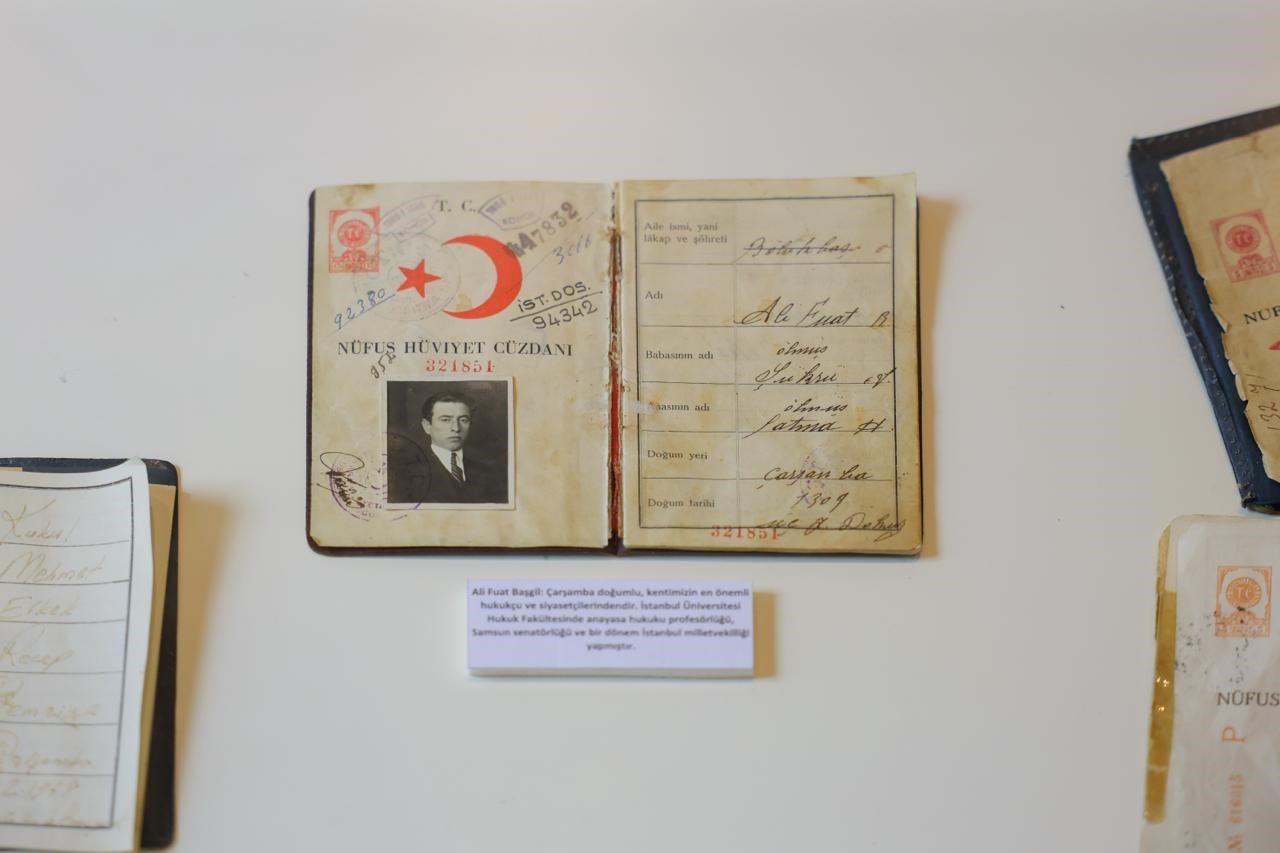 T. C.
447832
3266
92380
İST. DOS.
94342
NÜFUS HÜVIYET CÜZDANI
321851
Aile ismi, yani
lâkap ve şöhreti
Adı
Ali Fuat B
Babasının adı
ölmüş
Şükrü ef.
Anasının adı
ölmüş
Fatma H.
Doğum yeri
Çarşanba
Doğum tarihi
1309
321851
Ali Fuat Başgil: Çarşamba doğumlu, kentimizin en önemli
hukukçu ve siyasetçilerindendir. İstanbul Üniversitesi
Hukuk Fakültesinde anayasa hukuku profesörlüğü,
Samsun senatörlüğü ve bir dönem İstanbul milletvekilliği
yapmıştır.
Mehmet
Erkek
Recep
NÜFUS
P